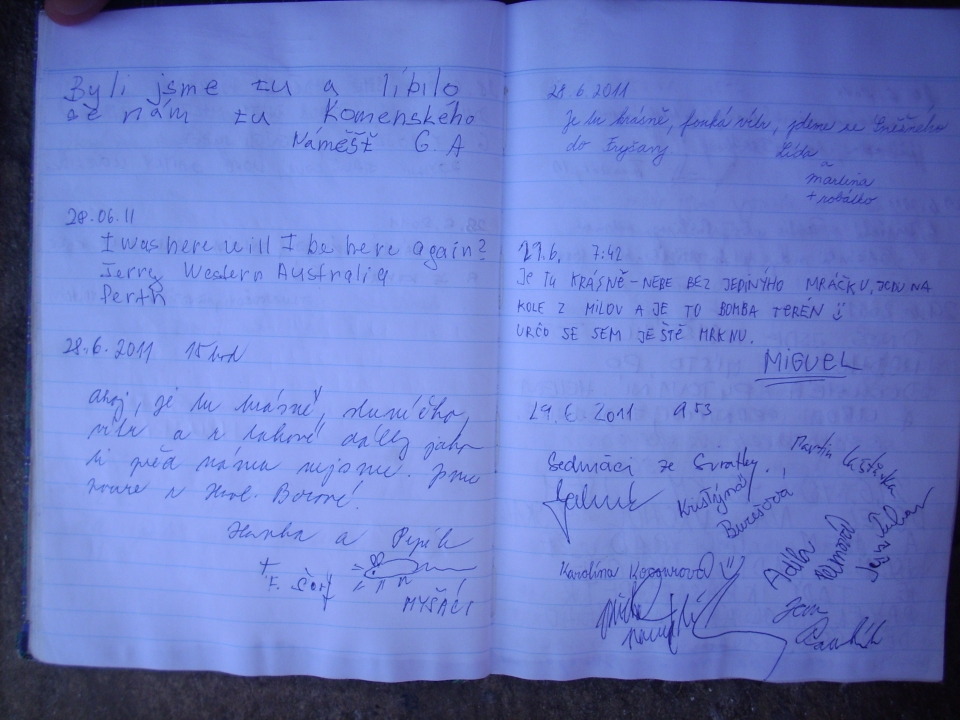 Byli jsme tu a líbilo
se nám tu Komenského
Náměšť G. A
28.06.11
I was here will I be here again?
Jerry Western Australia
Perth
28.6.2011 15 hod
ahoj, je tu krásně, sluníčko,
vítr a z takové dálky jako
ti před námi nejsme. Jsme
z Borové!
Hanka a Pepík
+
F. Šorf
MYŠÁCI
28.6.2011
Je tu krásně, fouká vítr, jdeme ze Sněžného
do Fryšavy.
Lída
a
martina
+ robátko
29.6. 7:42
JE TU KRÁSNĚ - NEBE BEZ JEDINÝHO MRÁČKU, JEDU NA
KOLE Z MILOV A JE TO BOMBA TERÉN
URČO SE SEM JEŠTĚ MRKNU.
MIGUEL
29.6.2011 9.53
Sedmáci ze Svratky.,
Martin
Kristýna
Burešová
Karolína
Adéla
Jan